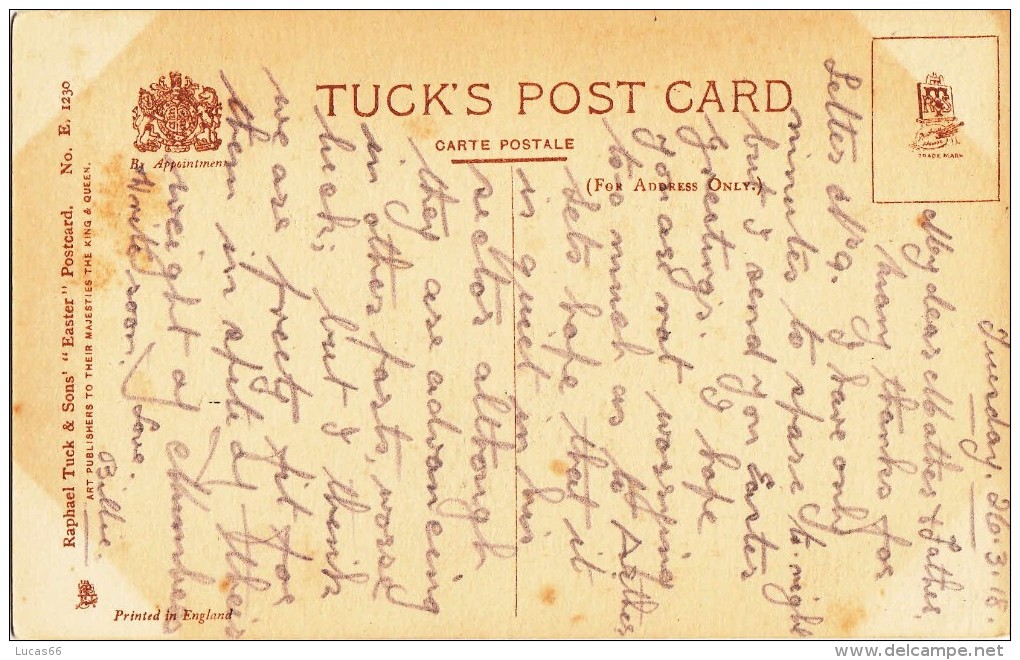 TUCK'S POST CARD
CARTE POSTALE
(FOR ADDRESS ONLY.)
By Appointment
TRADE MARK
Raphael Tuck & Sons' "Easter" Postcard. No. E. 1230
ART PUBLISHERS TO THEIR MAJESTIES THE KING & QUEEN.
Printed in England
Tuesday, 26.3.18.
My dear Mother & Father,
Many thanks for
letter No 9. I have only
minutes to spare to-night
but I send you Easter
Greetings. I hope
you are not worrying
too much as to Arthur
Lets hope that it
is quiet in his
sector although
they are advancing
in other parts, worse
luck; but I think
we are pretty fit for
them in spite of their
weight of numbers
Write soon. Love.
Billie.
Lucas66